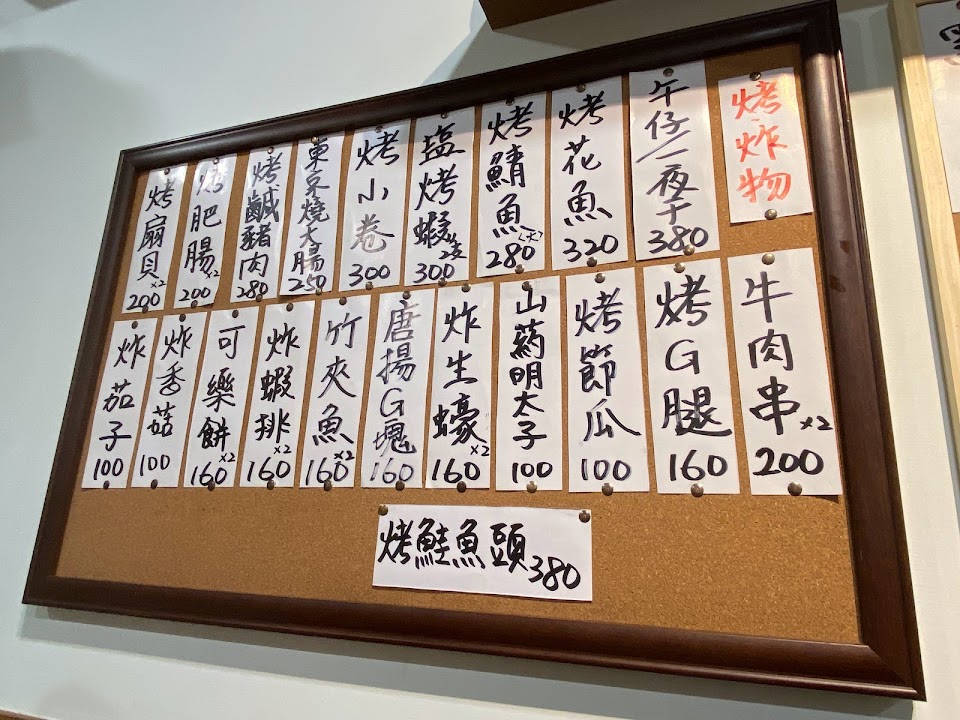 烤炸物
午仔一夜干 380
烤花魚 320
烤鯖魚(大) 280
塩烤蝦 300
烤小卷 300
東京燒大腸 250
烤鹹豬肉 280
烤肥腸×2 200
烤扇貝×2 200
牛肉串×2 200
烤G腿 160
烤節瓜 100
山葯明太子 100
炸生蠔×2 160
唐揚G塊 160
竹夾魚×2 160
炸蝦排×2 160
可樂餅×2 160
炸香菇 100
炸茄子 100
烤鮭魚頭 380